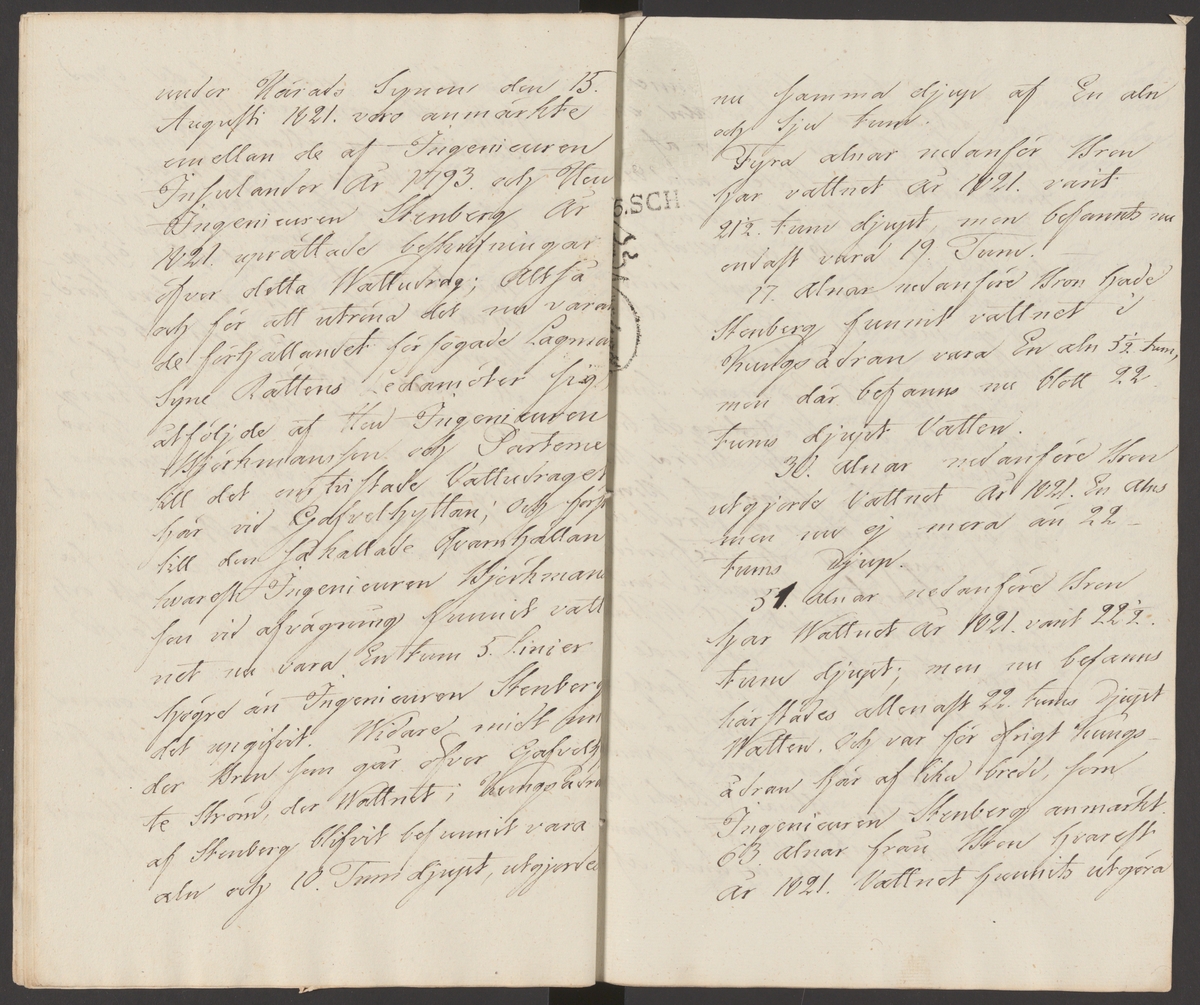 under Härads Synen den 15.
Augusti 1821. voro anmärkte
emellan de af Ingenieuren
Insulander År 1793. och Herr
Ingenieuren Stenberg År
1821. uprättade beskrifningar
öfver detta Wattudrag; Altså
och för att utröna det nu varan
de förhållandet förfogade Lagman
Syne Rättens Ledamöter sig
åtföljde af Herr Ingenieuren
Björkmansson och Parterne
till det omtvistade Vattudraget
här vid Gafvelhyttan; Och först
till den så kallade Qvarnhällan
hvarest Ingenieuren Björkmans
son vid afvägning funnit vatt
net nu vara En tum 5. Linier
högre än Ingenieuren Stenberg
det upgifvit. Widare midt un
der Bron som går öfver Gafvelhyt
te Ström, der Wattnet i Kungsådran
af Stenberg blifvit befunnit vara
aln och 18. Tum djupt, utgjorde
nu samma djup af En aln
och Sju tum.
Fyra alnar nedanför Bron
har vattnet År 1821. varit
21½. tum djupt, men befants nu
endast vara 19. Tum.
17. alnar nedanföre Bron hade
Stenberg funnit vattnet i
Kungsådran vara En aln 5½ tum,
men där befanns nu blott 22
tums djupt Vatten.
30. alnar nedanföre Bron
utgjorde Vattnet År 1821. En alns
men nu ej mera än 22-
tums Djup.
51. alnar nedanföre Bron
har Wattnet År 1821. varit 22½.
tum djupt; men nu befanns
härstädes allenast 22. tums Djupt
Watten. Och var för öfrigt Kungs-
ådran här af lika bredd, som
Ingenieuren Stenberg anmärkt.
63. alnar från Bron hvarest
År 1821. Vattnet funnits utgöra
6.SCH